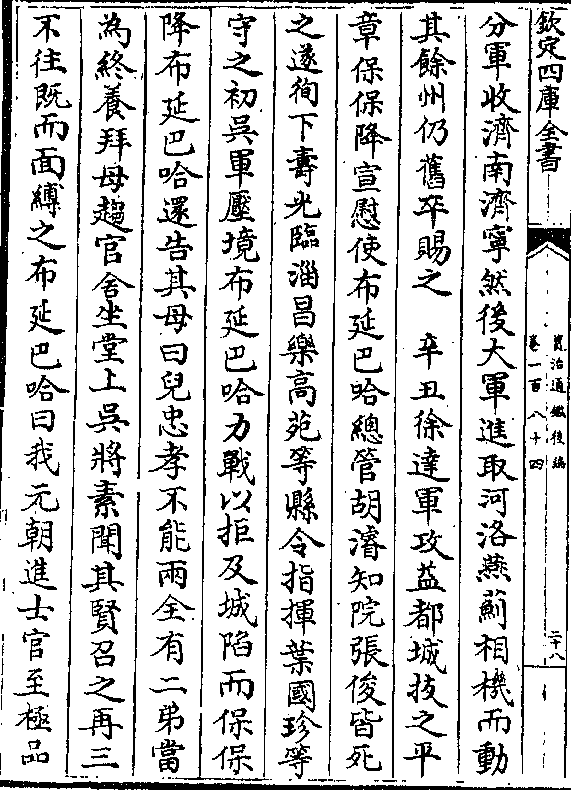 欽定四庫全書
資治通鑑後編
卷一百八十四
二十八
分軍收濟南濟寧然後大軍進取河洛燕薊相機而動
其餘州仍舊卒賜之　辛丑徐達軍攻益都城拔之平
章保保降宣慰使布延巴哈總管胡濬知院張俊皆死
之遂徇下壽光臨淄昌樂高苑等縣令指揮葉國珍等
守之初吳軍壓境布延巴哈力戰以拒及城陷而保保
降布延巴哈還告其母曰兒忠孝不能兩全有二弟當
為終養拜母趨官舍坐堂上吳將素聞其賢召之再三
不往既而面縛之布延巴哈曰我元朝進士官至極品